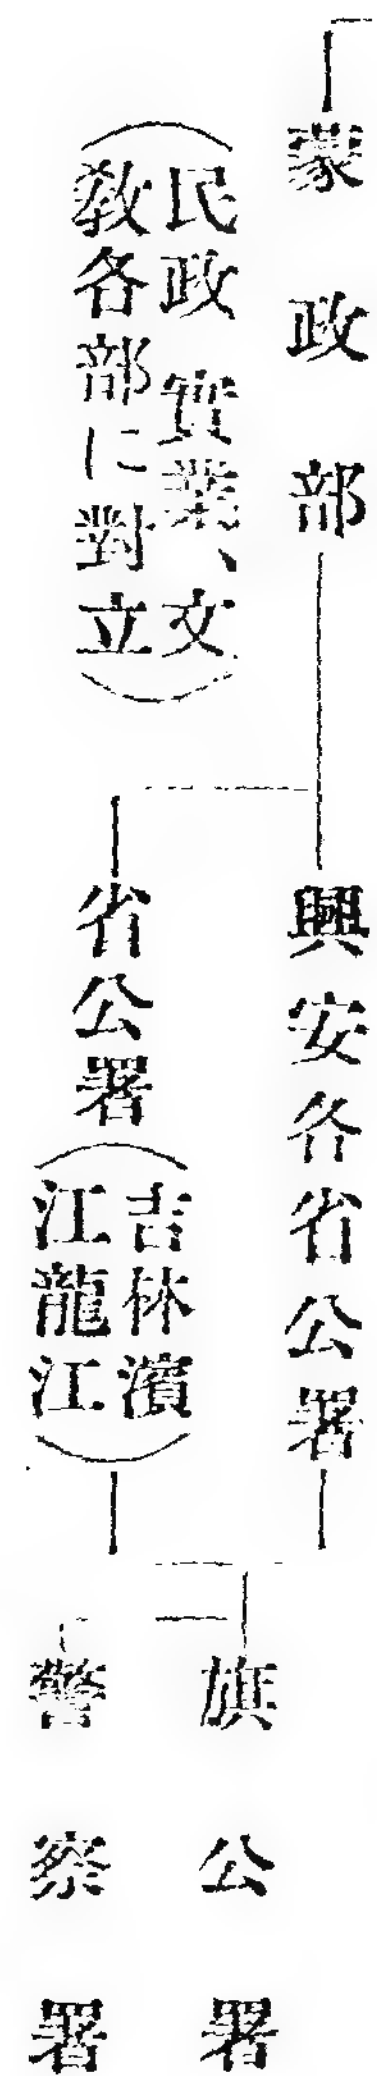 蒙政部
（民政實業、文
敎各部に對立）
興安各省公署
省公署
（吉林濱
江龍江）
旗公署
警察署